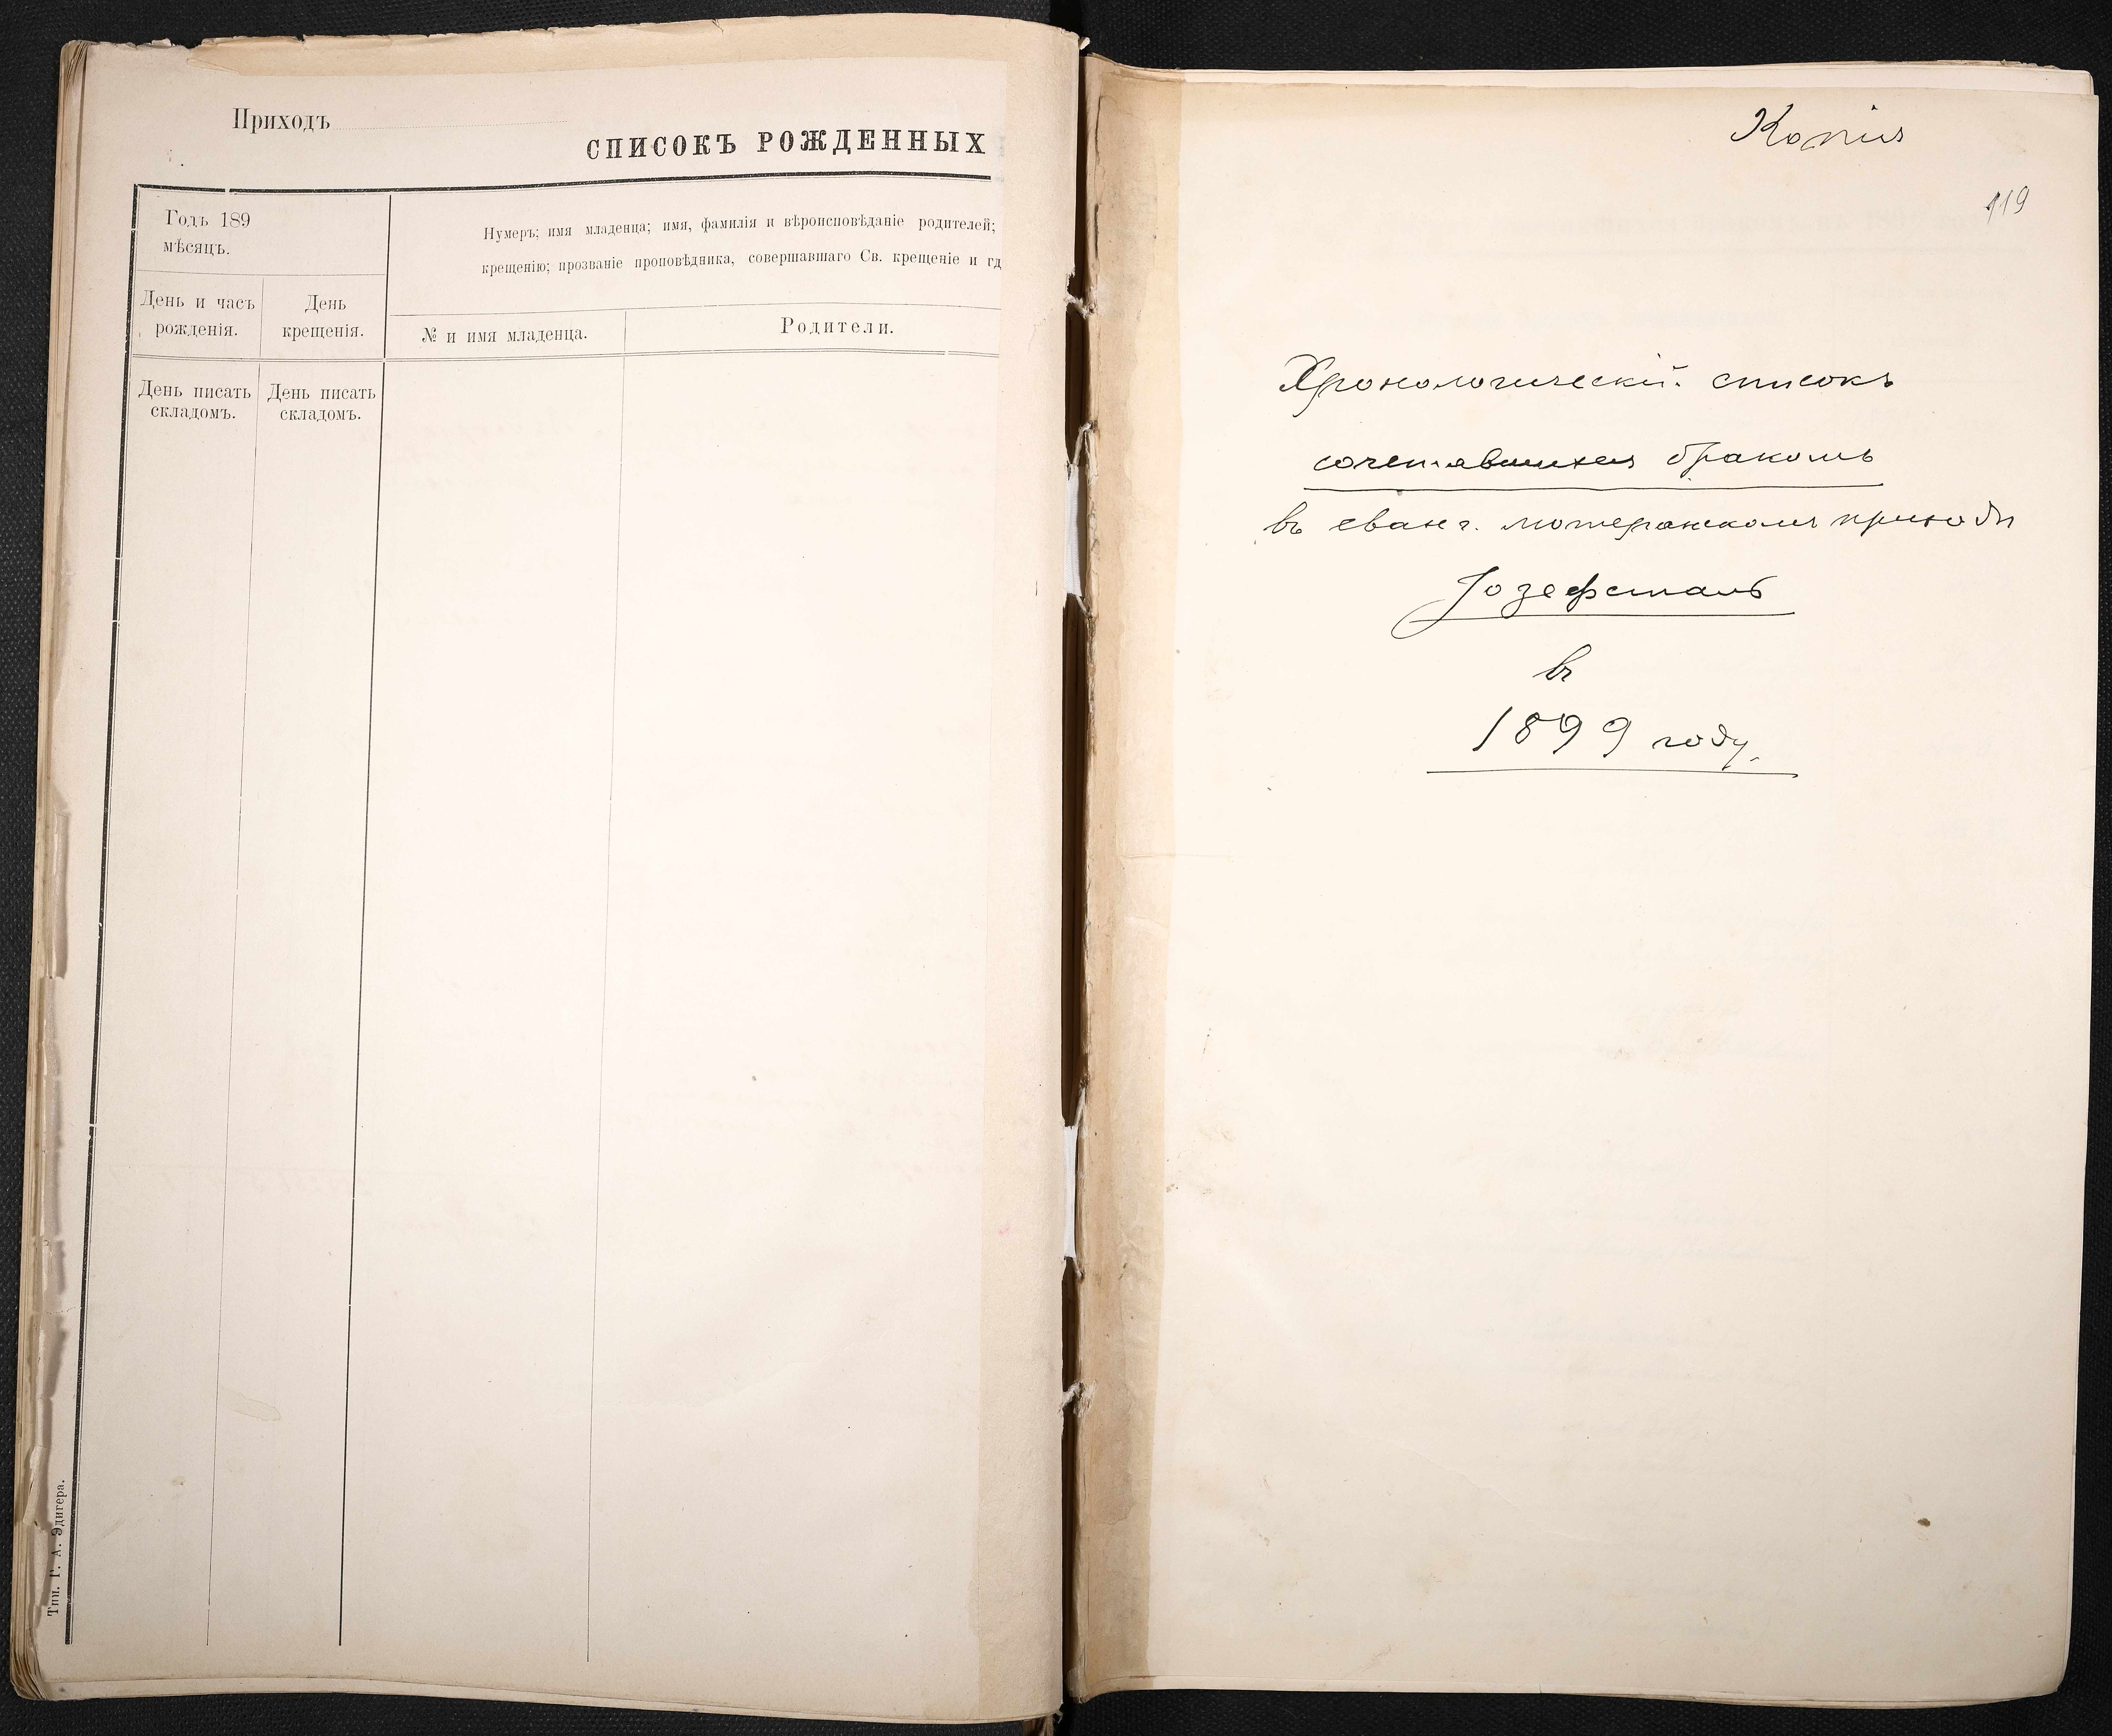 Приходъ
СПИСОКЪ РОЖДЕННЫХ
Годъ 189
мѣсяцъ.
Нумеръ; имя младенца; имя, фамилія и вѣроисповѣданіе родителей;
крещенію; прозваніе проповѣдника, совершавшаго Св. крещеніе и гд
День и часъ
рожденія.
День
крещенія.
№ и имя младенца.
Родители.
День писать
складомъ.
День писать
складомъ.
Тип. Г. А. Эдигера.
Копія
119
Хронологическій списокъ
сочетавшихся бракомъ
въ еванг. лютеранскомъ приходѣ
Іозефсталь
въ
1899 году.